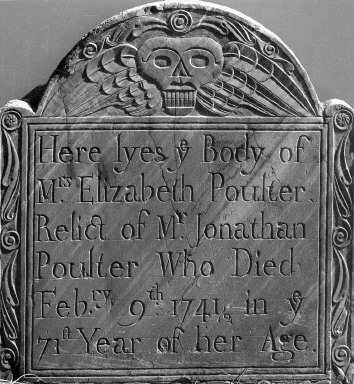 Here lyes yᵉ Body of
Mʳˢ Elizabeth Poulter.
Relict of Mʳ Jonathan
Poulter Who Died
Febʳʸ 9ᵗʰ 1741, in yᵉ
71ˢᵗ Year of her Age.